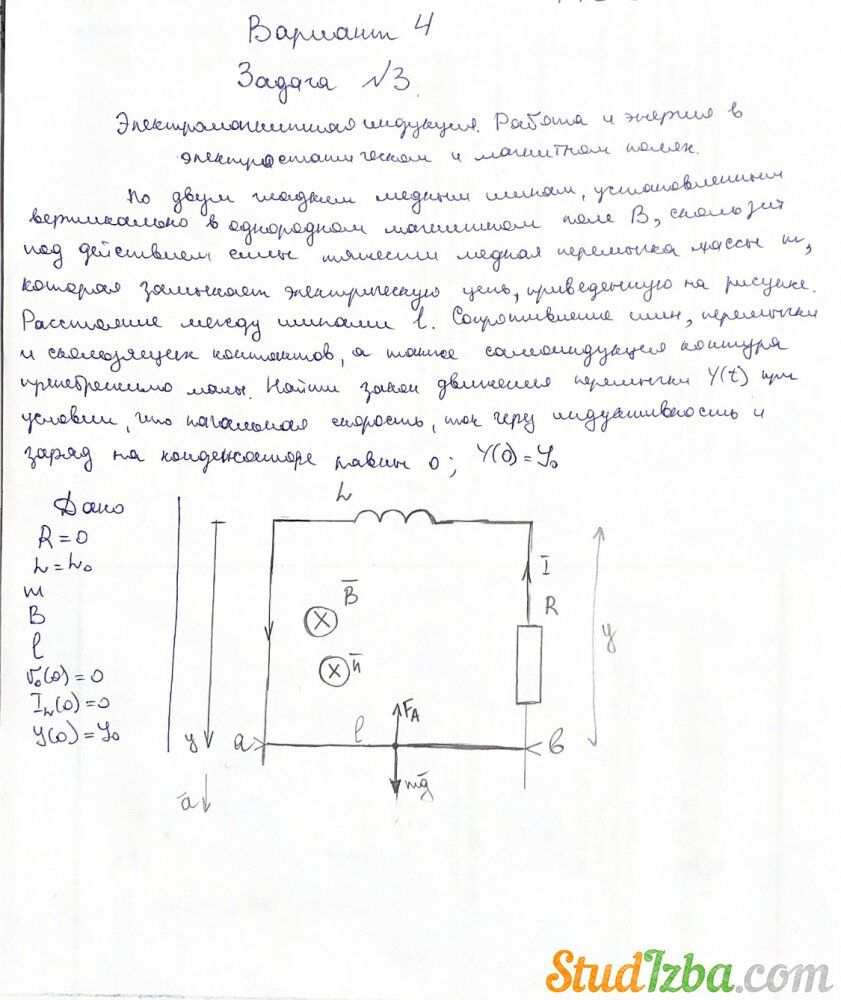 Вариант 4
Задача №3.
Электромагнитная индукция. Работа и энергия в
электростатическом и магнитном полях.
По двум гладким медным шинам, установленным
вертикально в однородном магнитном поле B, скользит
под действием силы тяжести медная перемычка массы m,
которая замыкает электрическую цепь, приведенную на рисунке.
Расстояние между шинами l. Сопротивление шин, перемычки
и скользящих контактов, а также самоиндукция контура
пренебрежимо малы. Найти закон движения перемычки Y(t) при
условии, что начальная скорость, ток через индуктивность и
заряд на конденсаторе равны 0; Y(0) = Y₀
Дано
R = 0
L = L₀
m
B
l
v₀(0) = 0
I_L(0) = 0
y(0) = y₀
L
I
B
R
n
y
F_A
l
y
a
b
mg
a
StudIzba.com